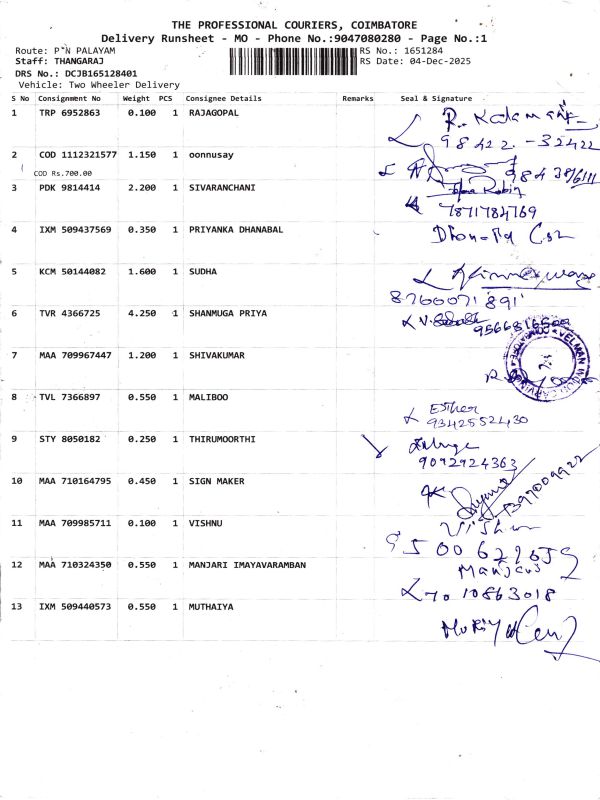 THE PROFESSIONAL COURIERS, COIMBATORE
Delivery Runsheet - MO - Phone No.:9047080280 - Page No.:1
Route: P N PALAYAM RS No.: 1651284
Staff: THANGARAJ RS Date: 04-Dec-2025
DRS No.: DCJB165128401
Vehicle: Two Wheeler Delivery
S No Consignment No Weight PCS Consignee Details Remarks Seal & Signature
1 TRP 6952863 0.100 1 RAJAGOPAL
98422-32422
2 COD 1112321577 1.150 1 oonnusay
COD Rs.700.00
3 PDK 9814414 2.200 1 SIVARANCHANI
7871784769
4 IXM 509437569 0.350 1 PRIYANKA DHANABAL
5 KCM 50144082 1.600 1 SUDHA
8760071891
6 TVR 4366725 4.250 1 SHANMUGA PRIYA
7 MAA 709967447 1.200 1 SHIVAKUMAR
8 TVL 7366897 0.550 1 MALIBOO
Esther
9342552430
9 STY 8050182 0.250 1 THIRUMOORTHI
9092924363
10 MAA 710164795 0.450 1 SIGN MAKER
11 MAA 709985711 0.100 1 VISHNU
12 MAA 710324350 0.550 1 MANJARI IMAYAVARAMBAN
7010863018
13 IXM 509440573 0.550 1 MUTHAIYA